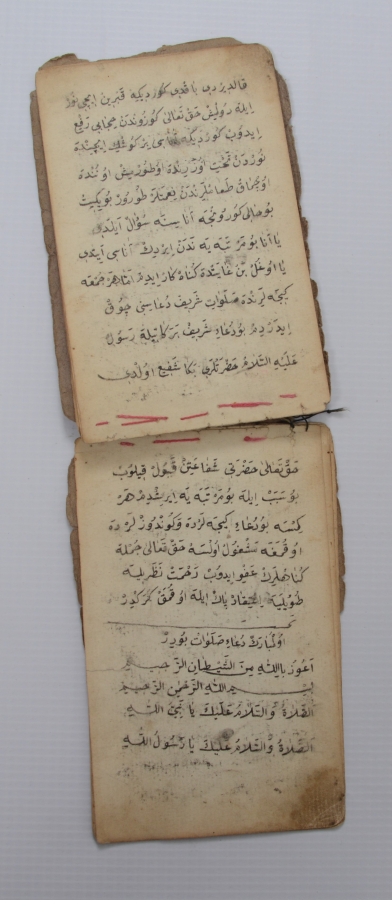 قالدیردی باقدی کوردیکه قبرین ایچی نور
ایله دولمش حق تعالی کوزوندن حجابی رفع
ایدوب کوردیکه آناسی بر کوشك ایچنده
نوردن تخت اوزرینده اوطورمش اوکنده
اوچماق طعاملرندن نعمتلر طورور بویکیت
بو حالی کوردوکچه آناسینه سؤال ایلدی
یا آنا بو مرتبه یه ندن ایردك آناسی ایتدی
یا اوغل بن غایتده کناهکار ایدم اما هر جمعه
کیجه لرنده صلوات شریف دعاسنی چوق
ایدردم بو دعاء شریف برکاتیله رسول
علیه السلام حضرتلری بکا شفیع اولدی
حق تعالی حضرتی شفاعتن قبول قیلوب
بو سبب ایله بو مرتبه یه ایرشدم هر
کمسه بو دعاء کیجه لرده وکوندوزلرده
اوقومغه مشغول اولسه حق تعالی جمله
کناهلرین عفو ایدوب رحمت نظریله
اعتقاد پاك ایله اوقمق کرکدر
اول مبارك دعاء صلوات بودر
اعوذ بالله من الشیطان الرجیم
بسم الله الرحمن الرحیم
الصلاة والسلام علیك یا نبی الله
الصلاة والسلام علیك یا رسول الله